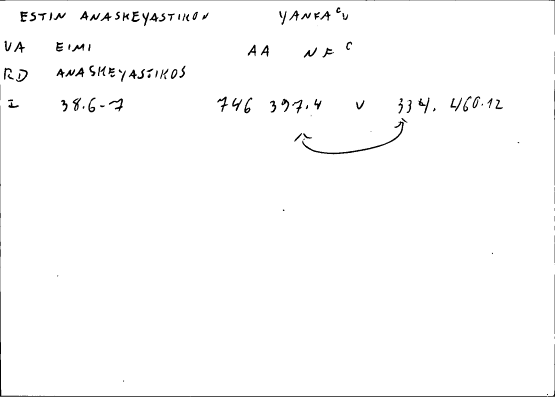 ESTIN ANASKEYASTIKON YANFA CU
VA EIMI AA NF C
RD ANASKEYASTIKOS
I 38.6-7 746 397.4 V 334, 460.12